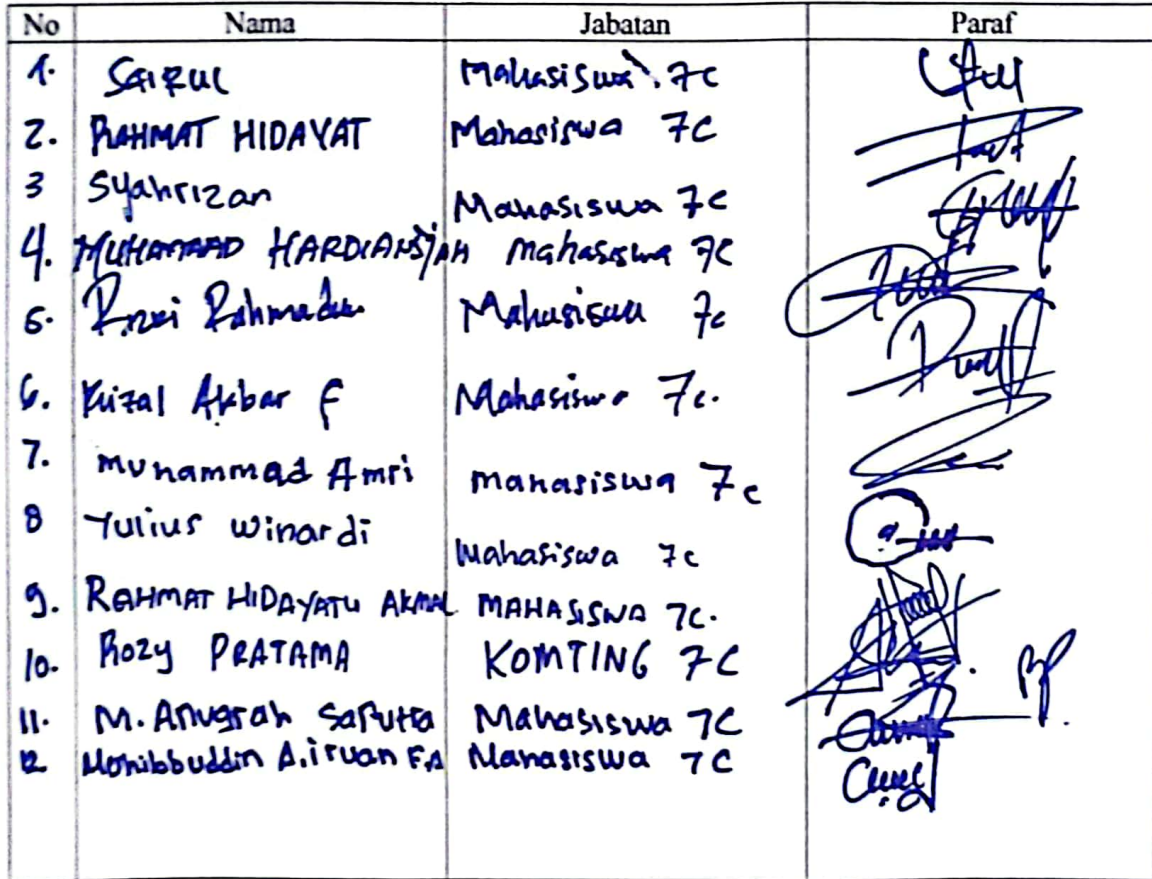 No Nama Jabatan Paraf
1. SAIRUL Mahasiswa 7C
2. RAHMAT HIDAYAT Mahasiswa 7C
3 Syahrizan Mahasiswa 7C
4. MUHAMMAD HARDIANSJAH Mahasiswa 7C
5. Rahmadan Mahasiswa 7c
6. Akbar F Mahasiswa 7c.
7. Muhammad Amri Mahasiswa 7c
8 Yulius Winardi Mahasiswa 7c
9. RAHMAT HIDAYATU AKMAL MAHASISWA 7C.
10. Rozy PRATAMA KOMTING 7C
11. M. Anugrah Saputra Mahasiswa 7C
12 A. irvan F.A Mahasiswa 7C